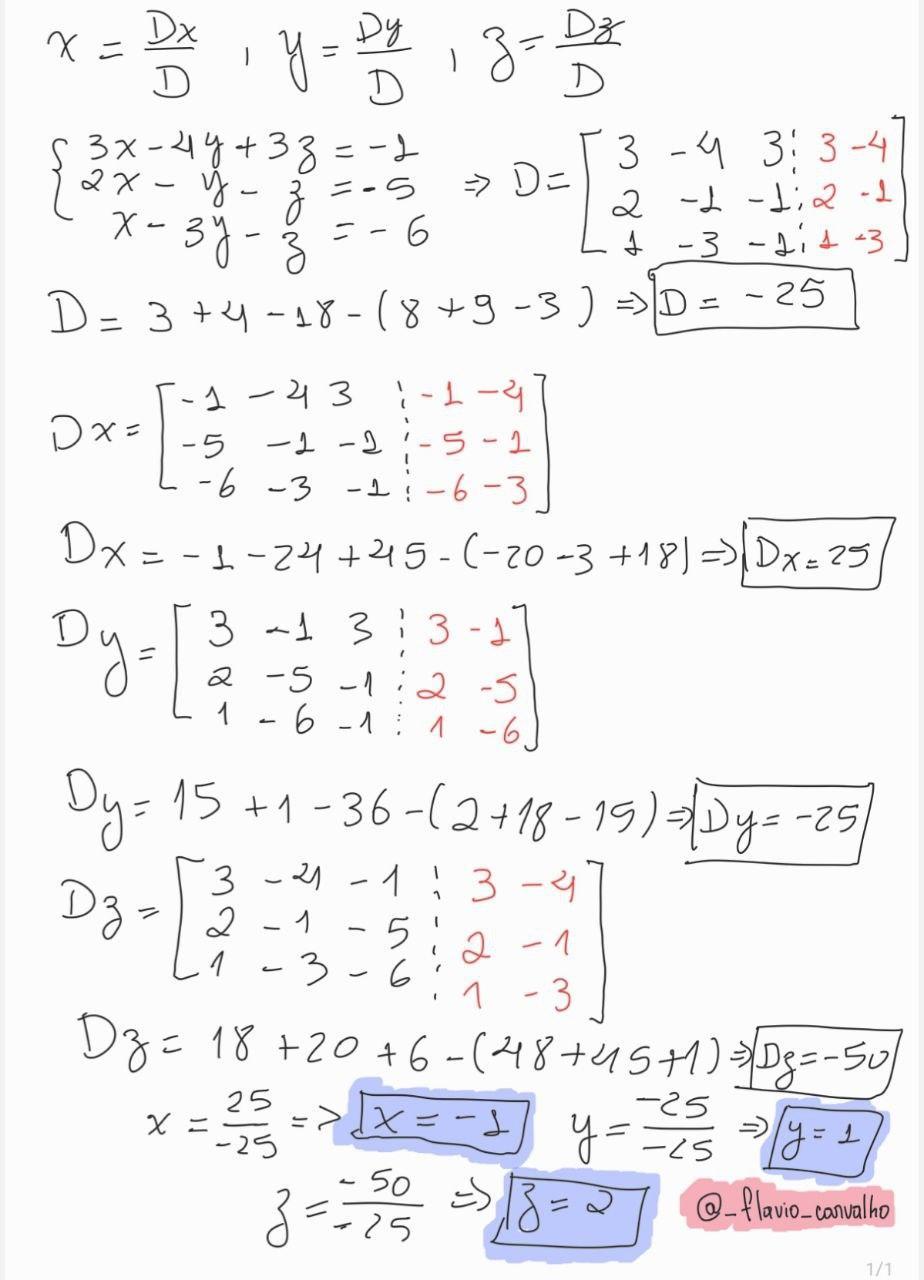 x = Dx/D , y = Dy/D , z = Dz/D
{ 3x - 4y + 3z = -1
2x - y - z = -5 ⇒ D = [ 3 -4 3 ¦ 3 -4
x - 3y - z = -6
2 -1 -1 ¦ 2 -1
1 -3 -1 ¦ 1 -3 ]
D = 3 + 4 - 18 - (8 + 9 - 3) ⇒ D = -25
Dx = [ -1 -4 3 ¦ -1 -4
-5 -1 -1 ¦ -5 -1
-6 -3 -1 ¦ -6 -3 ]
Dx = -1 - 24 + 45 - (-20 - 3 + 18) ⇒ Dx = 25
Dy = [ 3 -1 3 ¦ 3 -1
2 -5 -1 ¦ 2 -5
1 -6 -1 ¦ 1 -6 ]
Dy = 15 + 1 - 36 - (2 + 18 - 15) ⇒ Dy = -25
Dz = [ 3 -4 -1 ¦ 3 -4
2 -1 -5 ¦ 2 -1
1 -3 -6 ¦ 1 -3 ]
Dz = 18 + 20 + 6 - (48 + 45 + 1) ⇒ Dz = -50
x = 25/-25 => x = -1 y = -25/-25 ⇒ y = 1
z = -50/-25 ⇒ z = 2 @_flavio_carvalho
1/1